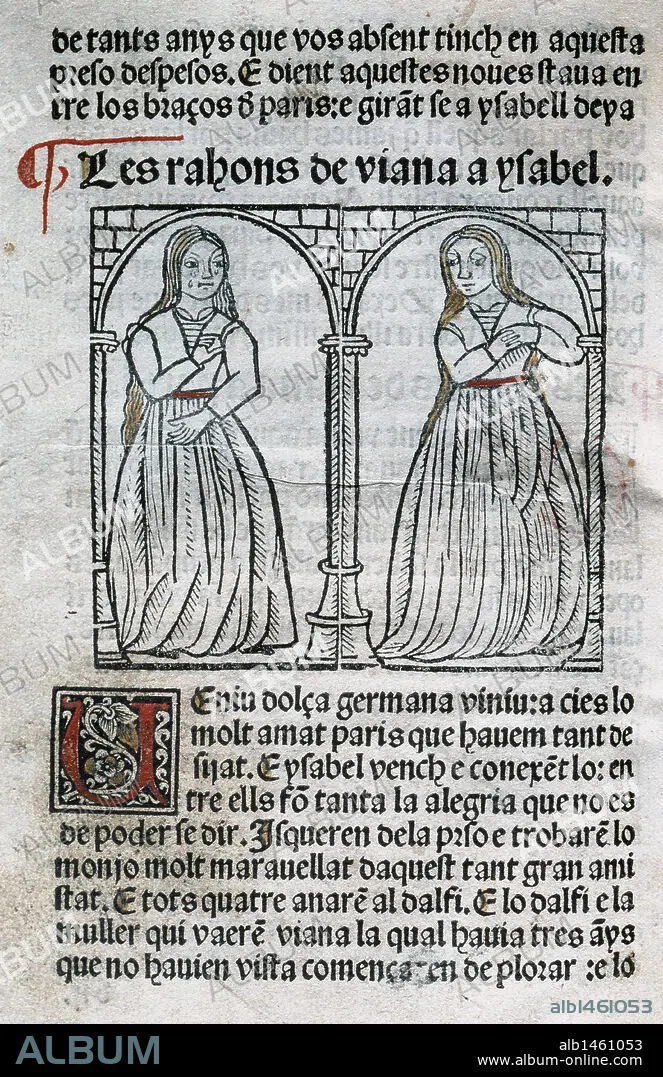 de tants anys que vos absent tinch en aquesta
preso despesos. E dient aquestes noues staua en
tre los braços d̄ paris: e girāt se a ysabell deya
¶ Les rahons de viana a ysabel.
UEniu dolça germana viniu: a cies lo
molt amat paris que hauem tant de
sijat. E ysabel vench e conexēt lo: en
tre ells fō tanta la alegria que no es
de poder se dir. Isqueren dela prso e trobarē lo
monjo molt marauellat daquest tant gran ami
stat. E tots quatre anarē al dalfi. E lo dalfi e la
muller qui vaerē viana la qual hauia tres āys
que no hauien vista començaren de plorar : e lo
alb1461053
ALBUM
alb1461053
www.album-online.com